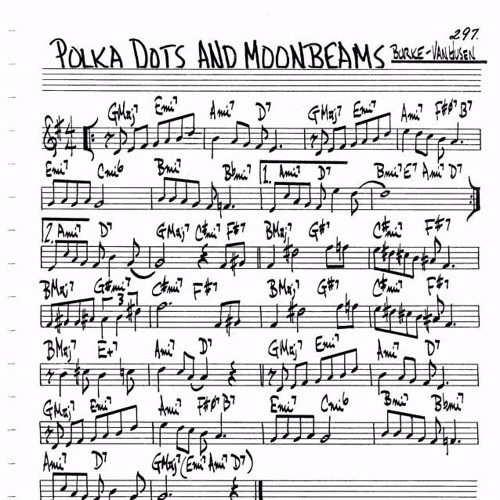 297.
POLKA DOTS AND MOONBEAMS BURKE-VANHUSEN
GMaj7 Emi7 Ami7 D7 GMaj7 Emi7 Ami7 F#ø7 B7
4 4
Emi7 Cmi6 Bmi7 Bbmi7 1. Ami7 D7 Bmi7 E7 Ami7 D7
2. Ami7 D7 GMaj7 C#mi7 F#7 BMaj7 G#7 C#mi7 F#7
BMaj7 G#mi7 C#mi7 F#7 BMaj7 G#7 C#mi7 F#7
3
BMaj7 E+7 Ami7 D7 GMaj7 Emi7 Ami7 D7
GMaj7 Emi7 Ami7 F#ø7 B7 Emi7 Cmi6 Bmi7 Bbmi7
Ami7 D7 GMaj7 (Emi7 Ami7 D7)